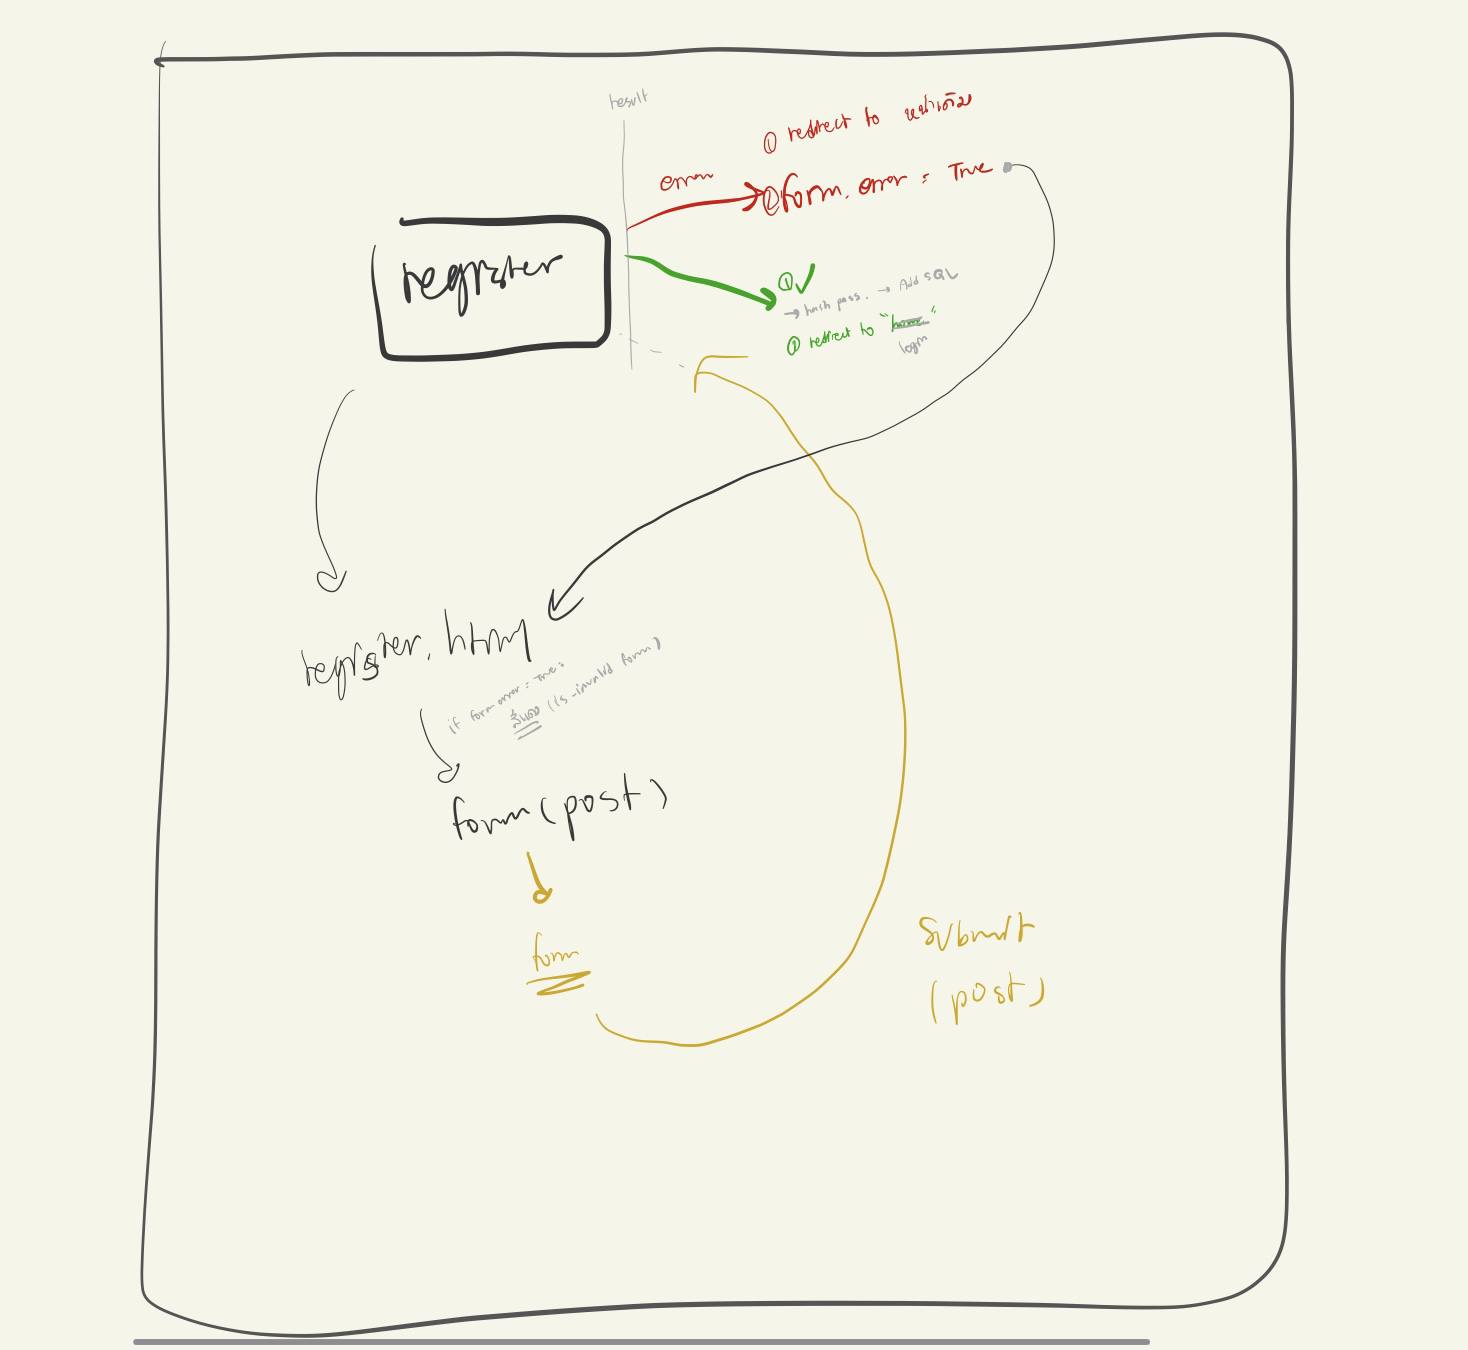 result
① redirect to หน้าเดิม
error
② form.error = True
register
① ✓
→ hash pass. → Add SQL
② redirect to "home"
login
register.html
if form error = True:
สีแดง (is-invalid form)
form (post)
form
submit
(post)